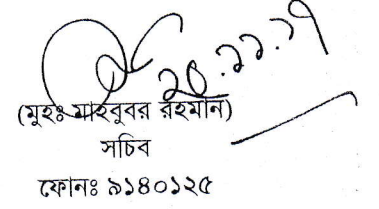 ২০.১১.১৭
(মুহঃ মাহবুবর রহমান)
সচিব
ফোনঃ ৯১৪০১২৫